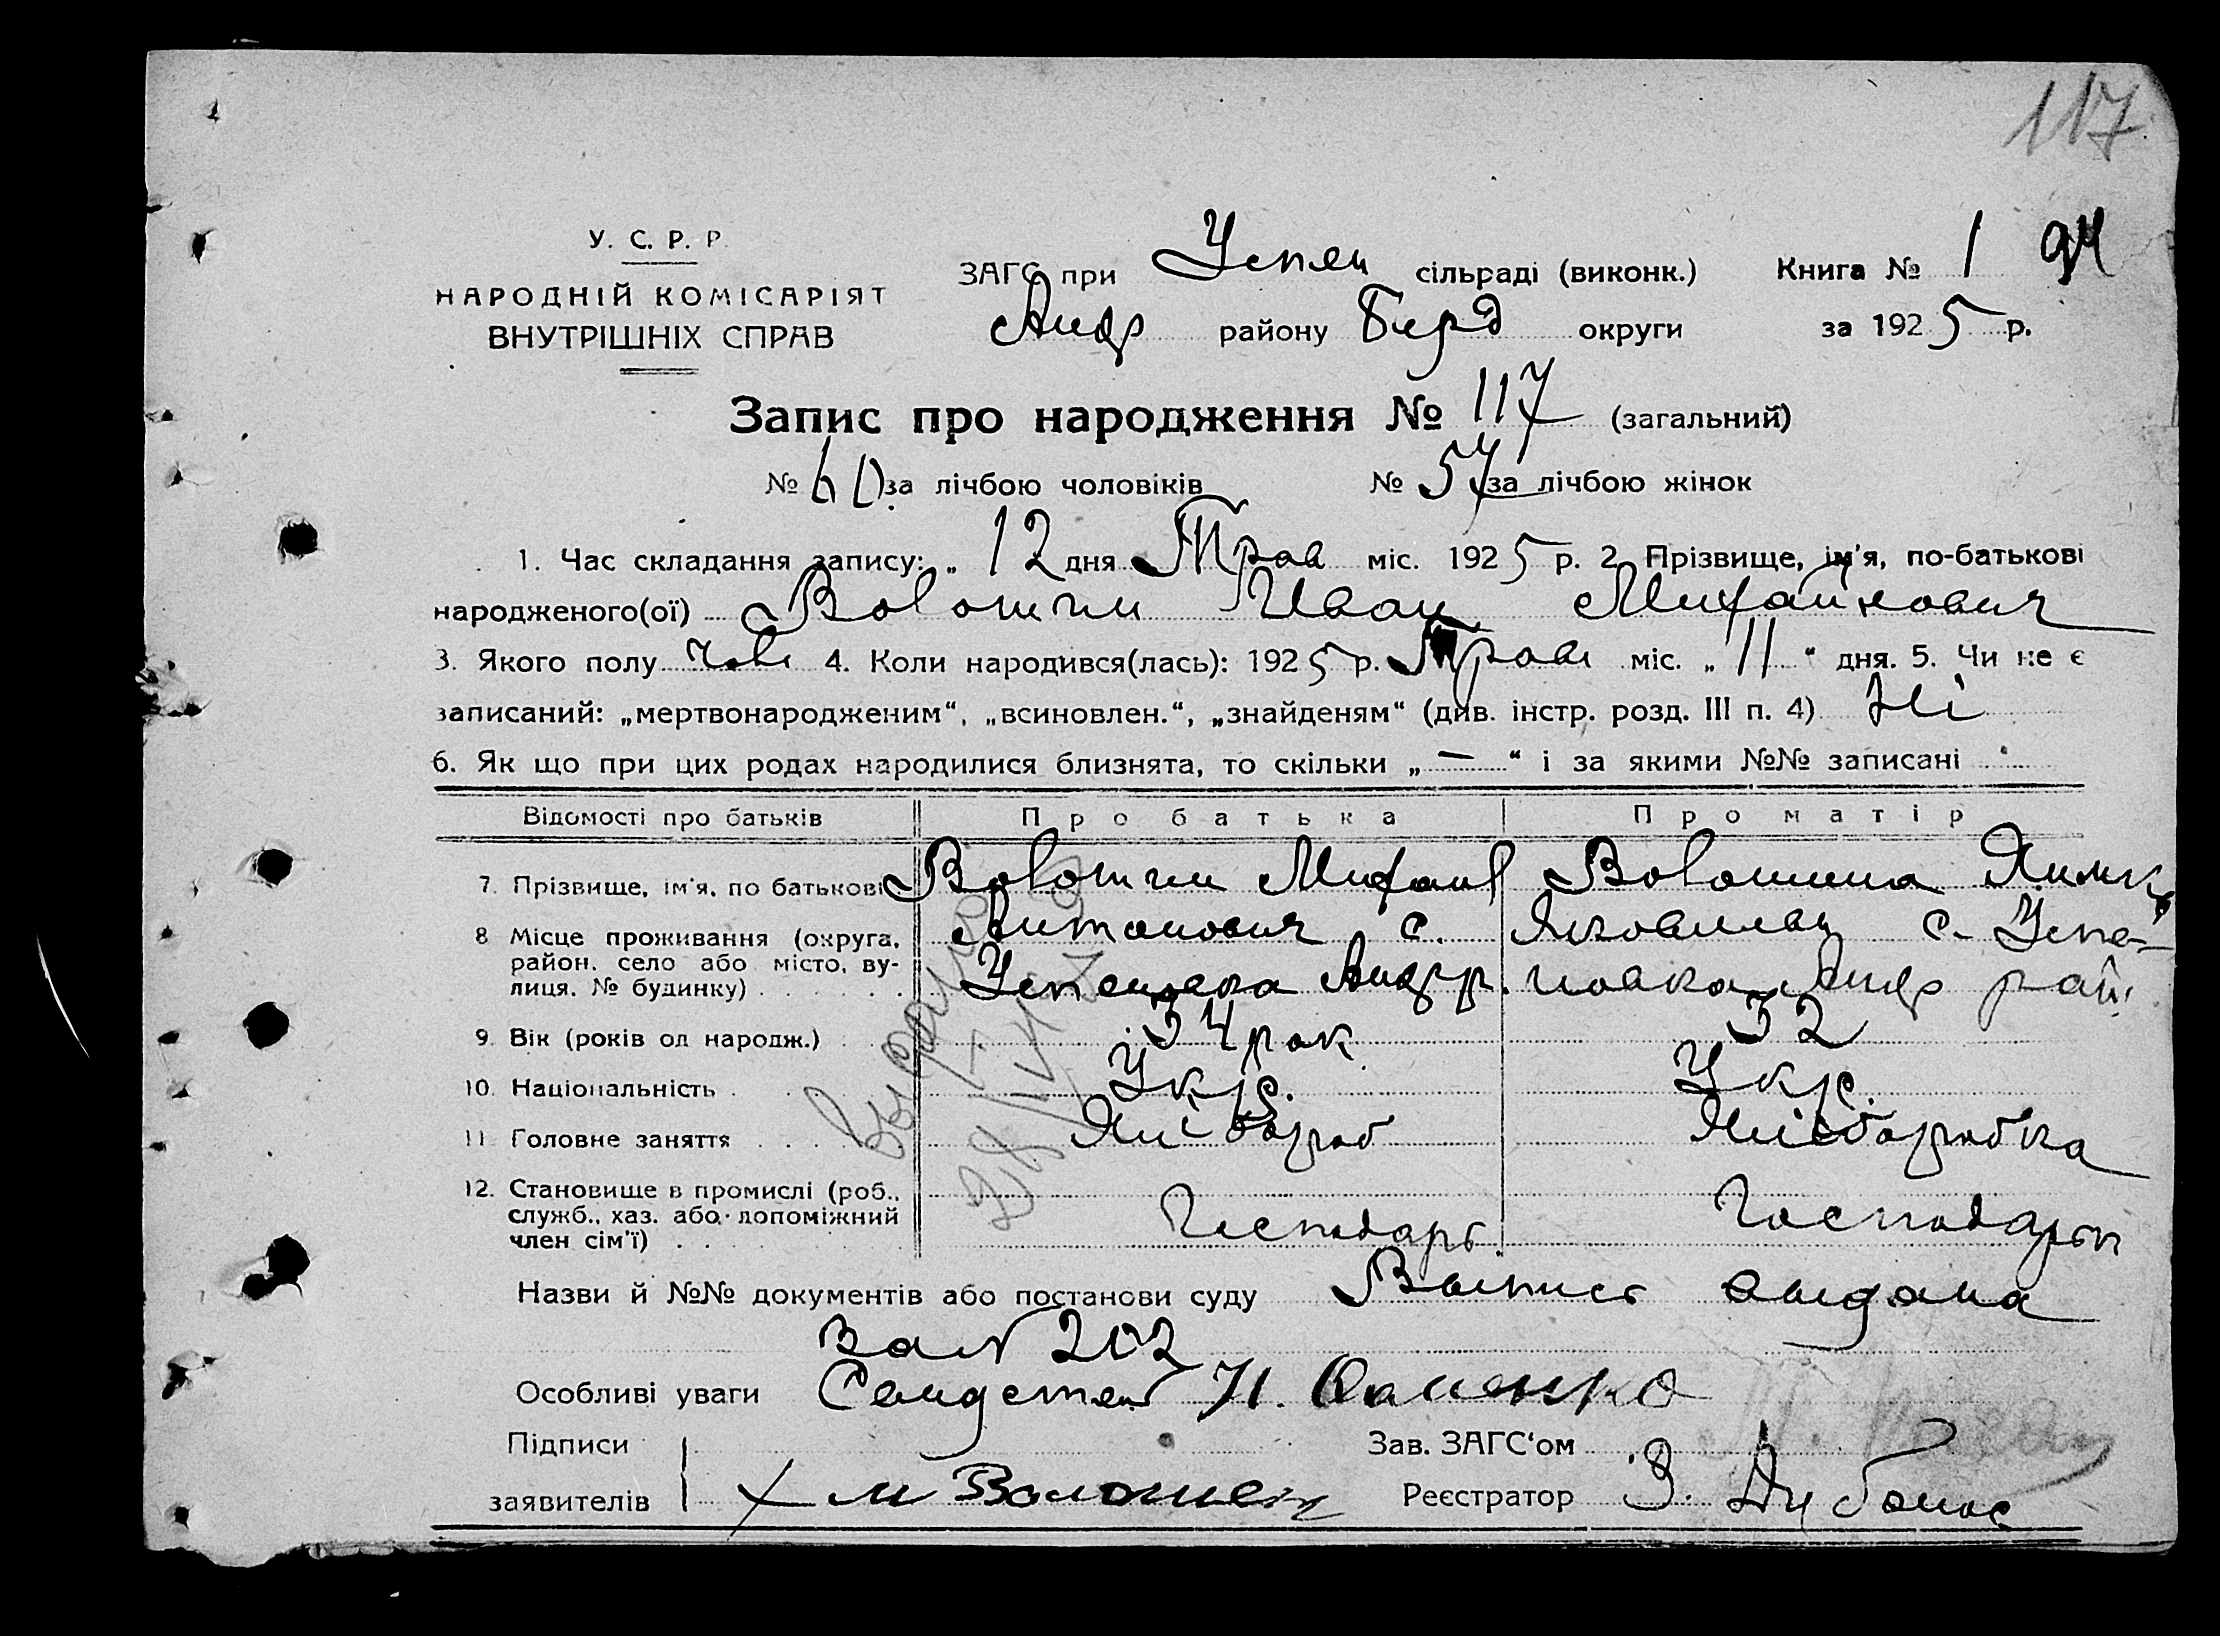 117
У. С. Р. Р.
НАРОДНІЙ КОМІСАРІЯТ
ВНУТРІШНІХ СПРАВ
ЗАГС при Успен сільраді (виконк.) Книга № 1 94
Андр району Берд округи за 1925 р.
Запис про народження № 117 (загальний)
№ 60 за лічбою чоловіків № 57 за лічбою жінок
1. Час складання запису: „ 12 дня Трав міс. 1925 р. 2. Прізвище, ім'я, по-батькові
народженого(ої) Волошин Иван Михайлович
3. Якого полу чов 4. Коли народився(лась): 1925 р. Трав міс. „ 11 “ дня. 5. Чи не є
записаний: „мертвонародженим“, „всиновлен.“, „знайденям“ (див. інстр. розд. III п. 4) Ні
6. Як що при цих родах народилися близнята, то скільки „ — “ і за якими №№ записані
Відомості про батьків Про батька Про матір
7. Прізвище, ім'я, по батькові Волошин Михаил Волошина
Антонович с. Яковлевн с. Успе-
8 Місце проживання (округа, район, село або місто, вулиця, № будинку) Успеновка Андр р. новка Андр рай
9. Вік (років од народж.) 34 рок 32
10. Національність Укр. Укр.
11 Головне заняття Хлібороб Хліборобка
12. Становище в промислі (роб., служб., хаз. або допоміжний член сім'ї) Господарь Господарьк
28/IV
Назви й №№ документів або постанови суду Выпись выдана
за № 202
Особливі уваги
Підписи Зав. ЗАГС'ом
заявителів м Волошен Реєстратор З.